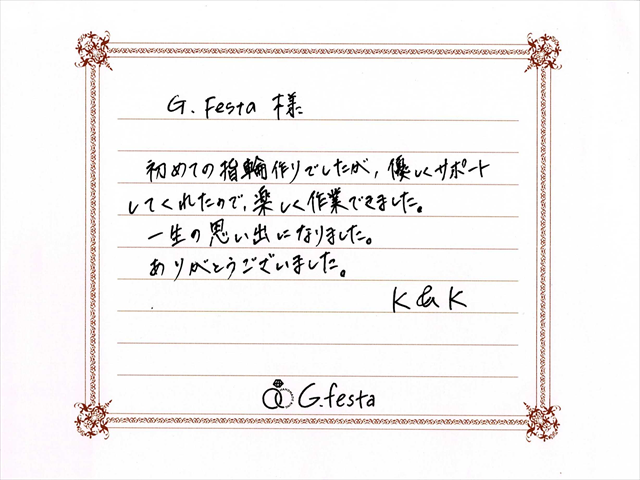 G. Festa 様
初めての指輪作りでしたが, 優しくサポート
してくれたので, 楽しく作業できました。
一生の思い出になりました。
ありがとうございました。
K & K
G.festa